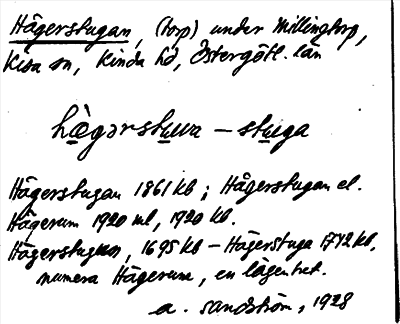 Hägerstugan, (torp) under Millingtorp,
Kisa sn, Kinda hd, Östergötl. län
hä̀gərstuwa – stuga
Hägerstugan 1861 kb; Hägerstugan el.
Hägerum 1920 ml, 1920 kb.
Hägerstugan, 1695 kb – Hägerstuga 1742 kb,
numera Hägerum, en lägenhet.
a. Sandström, 1928